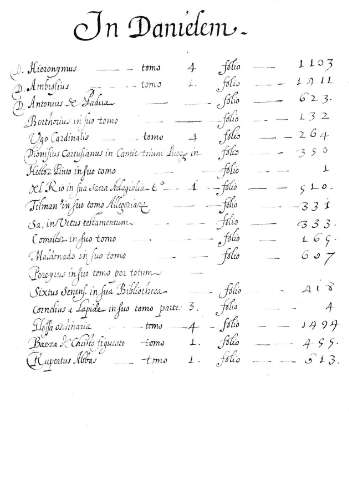 In Danielem.
D. Hieronymus tomo 4. folio 1103
D. Ambrosius tomo 1. folio 1411
D. Antonius de Padua folio 623.
in suo tomo folio 132
Ugo Cardinalis tomo 4 folio 264
Dionysius Cartusianus in folio 350
Hector Pinto in suo tomo folio 1
in sua Sacra 1 folio 510.
Tilman in suo tomo Allegoriarum folio 331
Sa, in Vetus testamentum folio 333.
in suo tomo folio 165.
Maldonado in suo tomo folio 607
Pererius in suo tomo per totum
Sixtus Senens. in sua Bibliotheca folio 418
Cornelius a Lapide in suo tomo parte 3. folio 4
Glossa ordinaria tomo 4 folio 1494
Baeza de Christo figurato tomo 1. folio 455.
Rupertus Abbas tomo 1. folio 513.